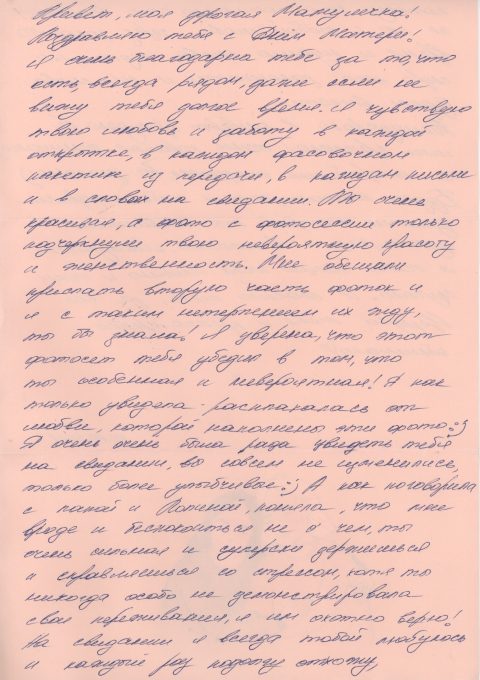 Привет, моя дорогая Мамулечка!
Поздравляю тебя с Днём Матери!
Я очень благодарна тебе за то, что
есть всегда рядом, даже если не
вижу тебя долгое время. Я чувствую
твою любовь и заботу в каждой
открытке, в каждом фасовочном
пакетике из передачи, в каждом письме
и в словах на свидании. Ты очень
красивая, а фото с фотосессии только
подчеркнули твою невероятную красоту
и женственность. Мне обещали
прислать вторую часть фоток и
я с таким нетерпением их жду,
ты бы знала! Я уверена, что этот
фотосет тебя убедил в том, что
ты особенная и невероятная! Я как
только увидела - расплакалась от
любви, которой наполнены эти фото :)
Я очень очень была рада увидеть тебя
на свидании, вы совсем не изменились,
только более улыбчивые :) А как поговорила
с папой и Полиной, поняла, что мне
вроде и беспокоиться не о чем, ты
очень сильная и суперски держишься
и справляешься со стрессом, хотя ты
никогда особо не демонстрировала
свои переживания, я им охотно верю!
На свидании я всегда тобой любуюсь
и каждый раз подолгу отхожу,